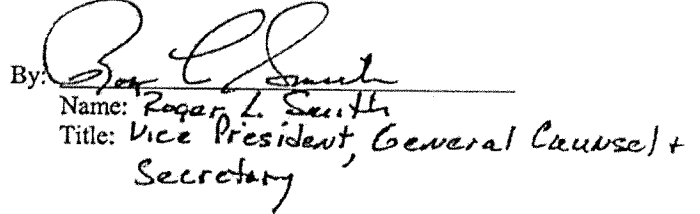 By: Roger L Smith
Name: Roger L. Smith
Title: Vice President, General Counsel +
Secretary